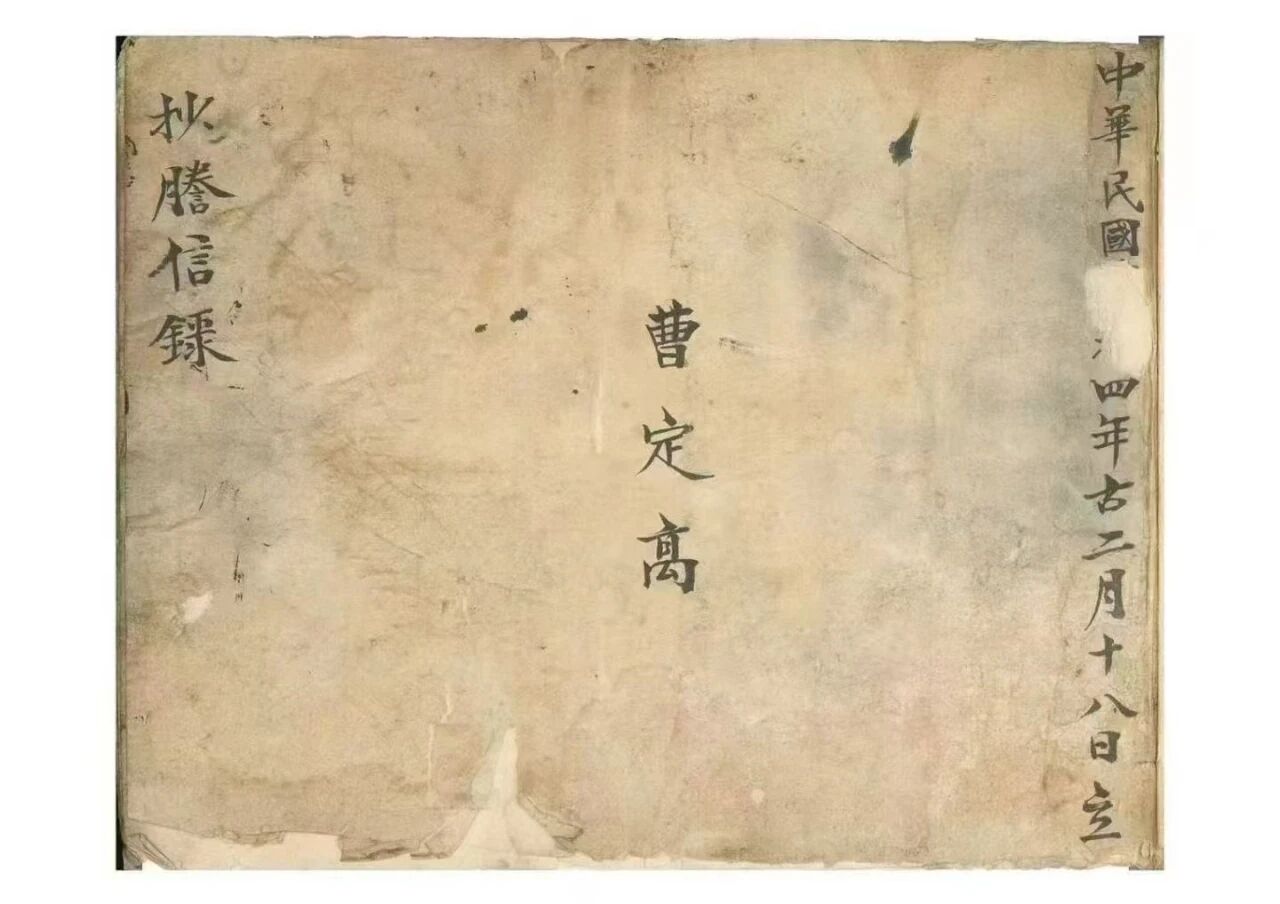 中華民國
四年古二月十八日立
曹定高
抄謄信錄